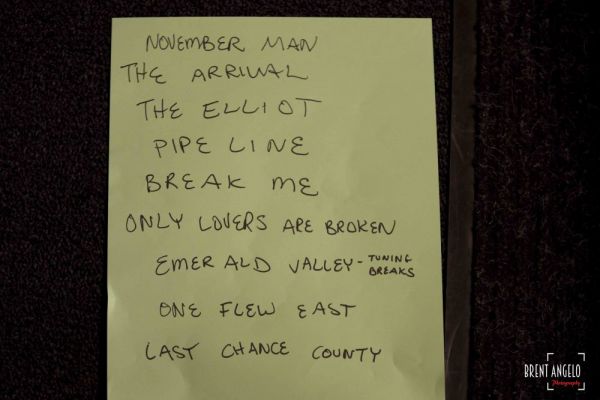 NOVEMBER MAN
THE ARRIVAL
THE ELLIOT
PIPE LINE
BREAK ME
ONLY LOVERS ARE BROKEN
EMERALD VALLEY - TUNING BREAKS
ONE FLEW EAST
LAST CHANCE COUNTY
BRENT ANGELO
Photography